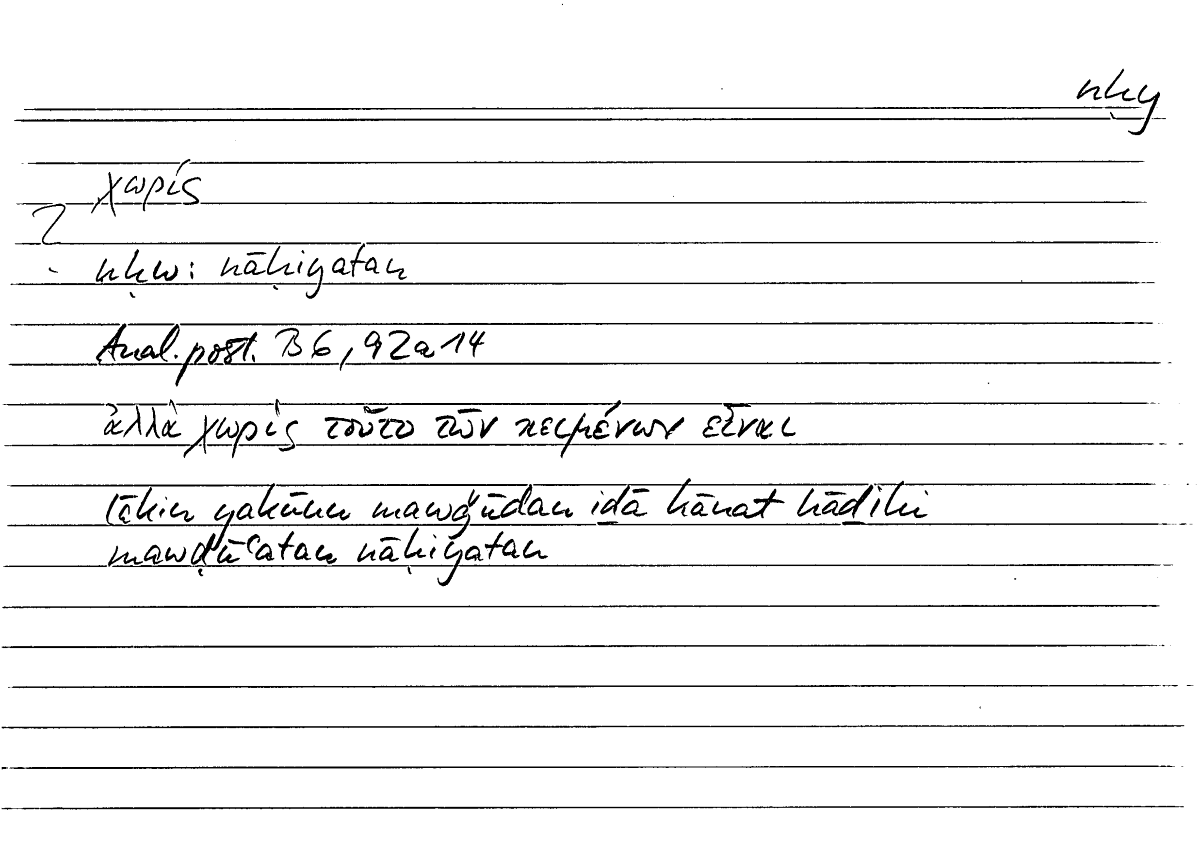 nḥy
χωρίς
?
nḥw: nāḥiyatan
Anal. post. B 6, 92a14
ἀλλὰ χωρὶς τοῦτο τῶν κειμένων εἶναι
lākin yakūnu mawǧūdan iḏā kānat hāḏihi
mawḍūʿatan nāḥiyatan